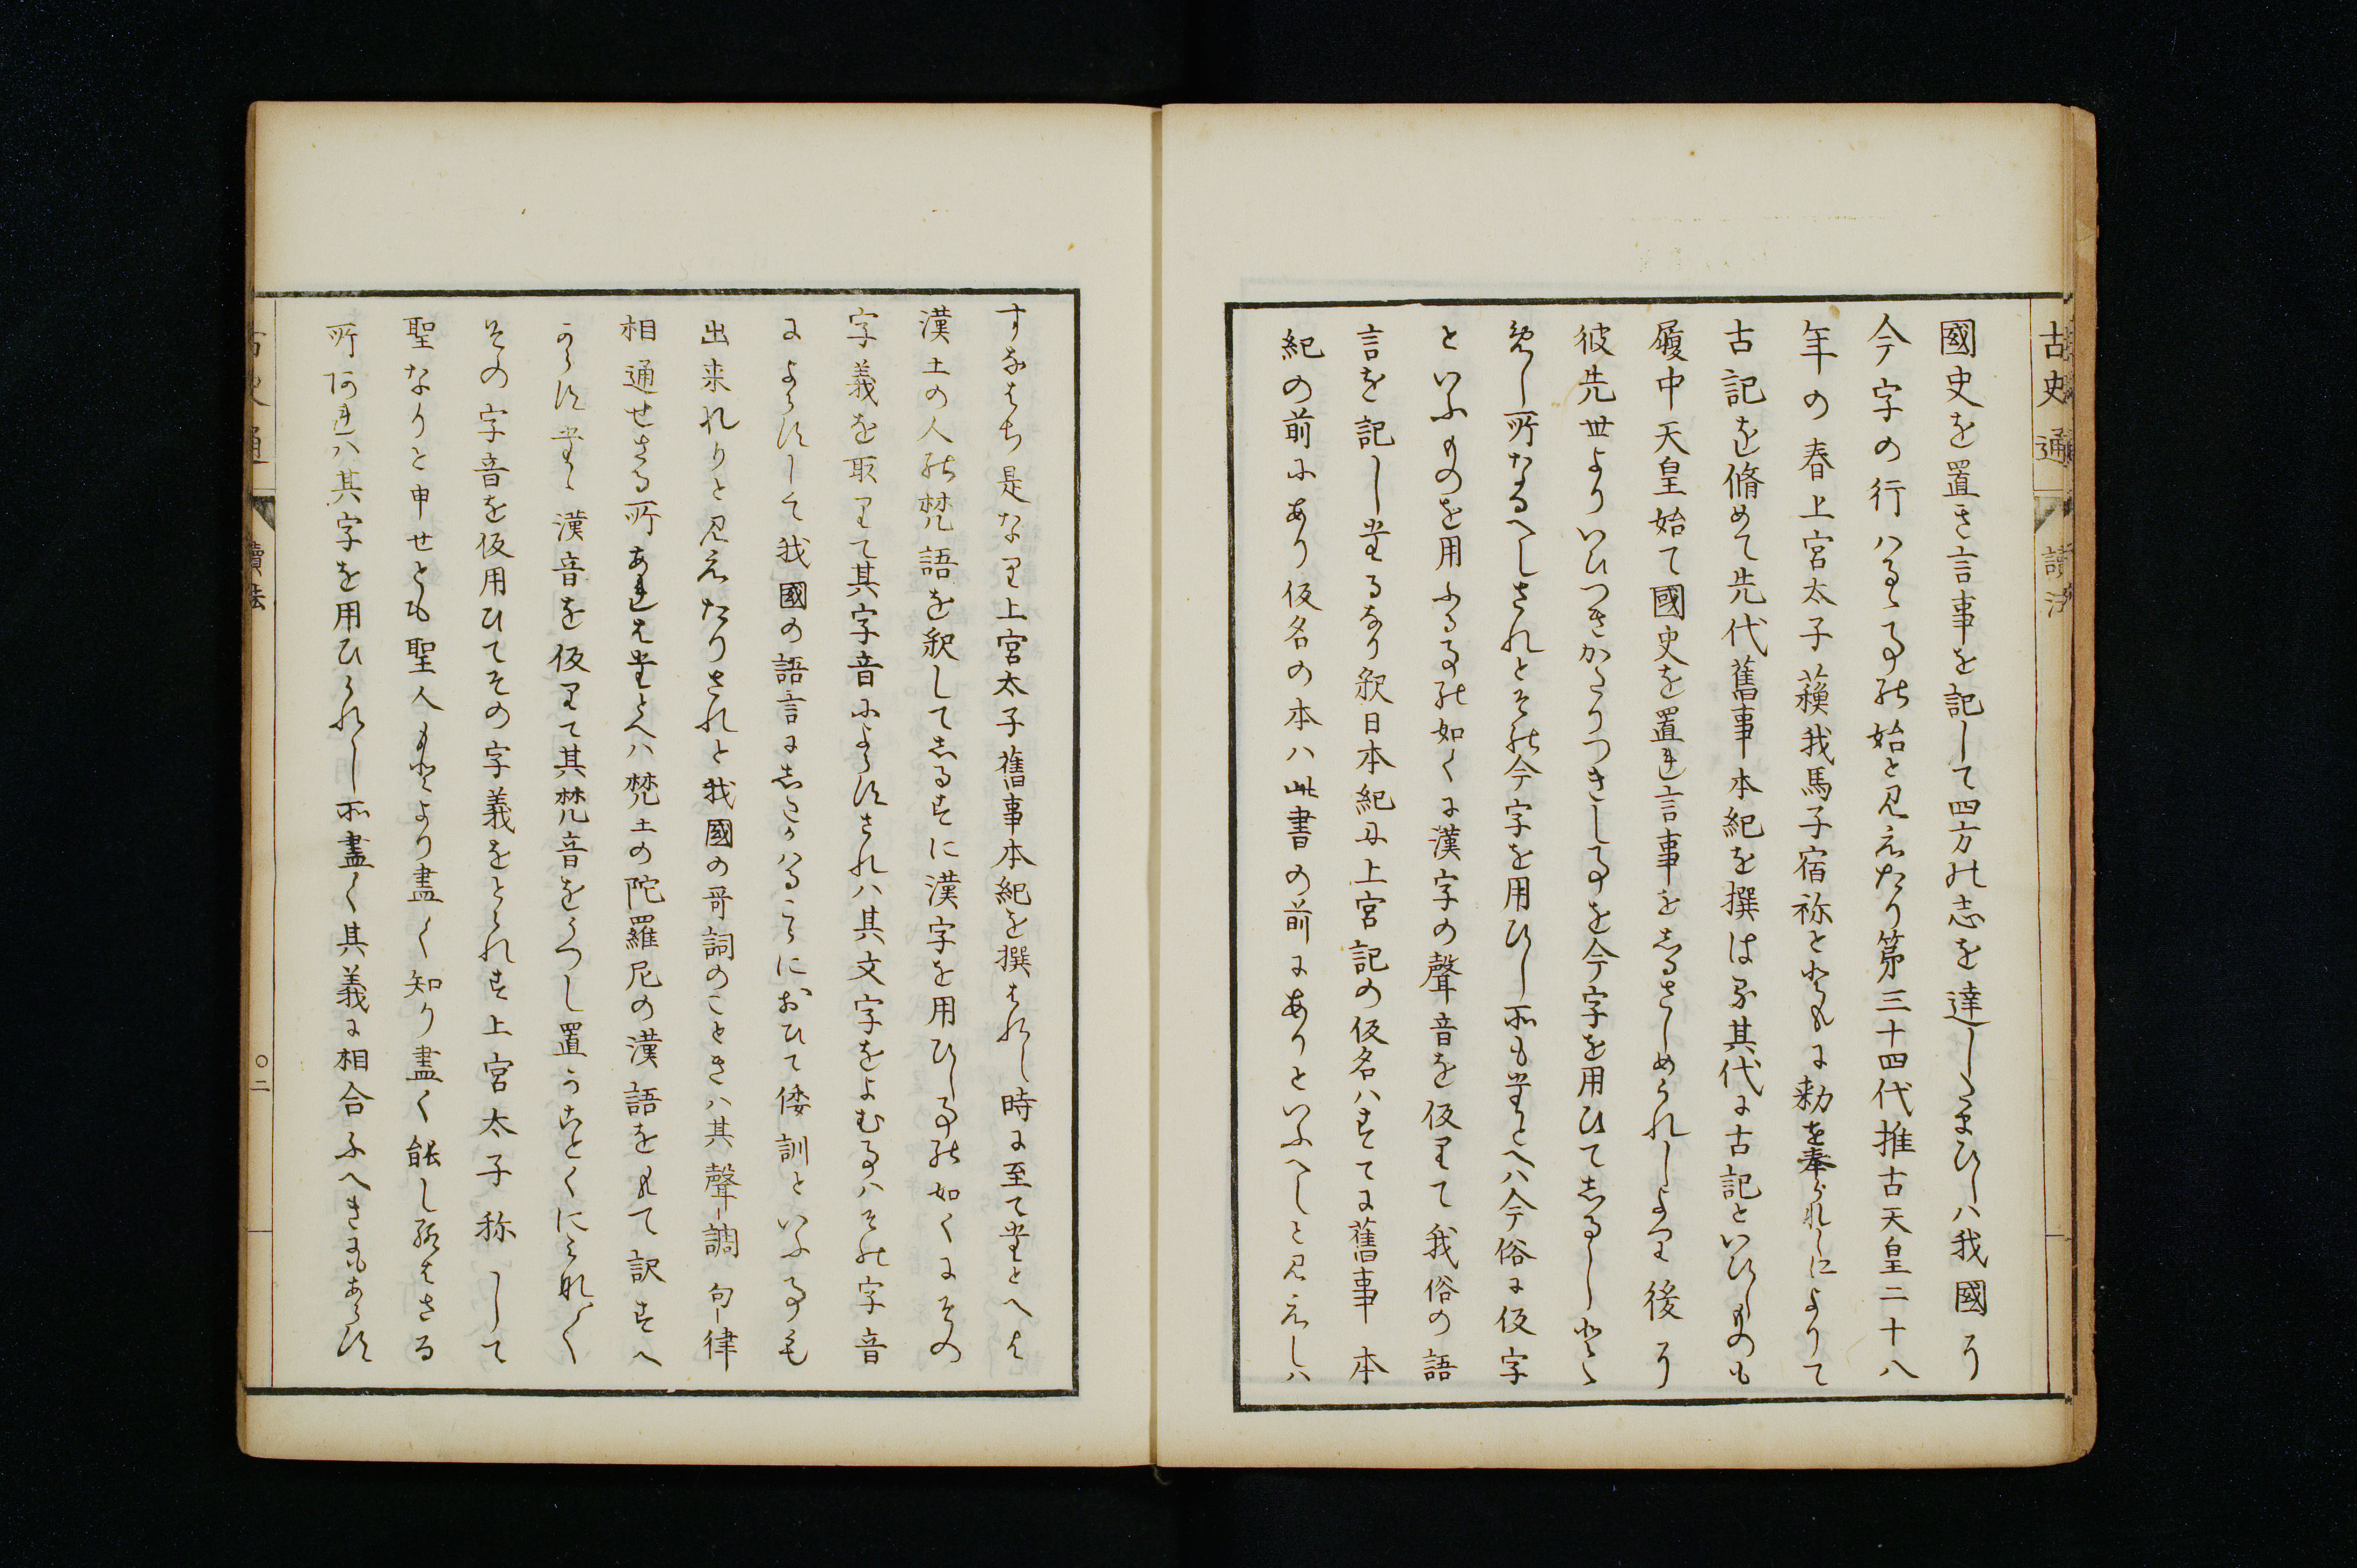 古史通 讀法
國史を置き言事を記して四方の志を達したまひしハ我國に
今字の行ハるゝ事の始と見えたり第三十四代推古天皇二十八
年の春上宮太子蘓我馬子宿祢とともに勅を奉られしによりて
古記を脩めて先代舊事本紀を撰はる其代に古記といひしものも
履中天皇始て國史を置れ言事をしるさしめられしより後に
彼先世よりいひつきかたりつきし事を今字を用ひてしるしとゝ
めし所なるへしされとその今字を用ひし所もたとへハ今俗に仮字
といふものを用ふる事の如くに漢字の聲音を仮りて我俗の語
言を記したるなり釈日本紀に上宮記の仮名ハすてに舊事本
紀の前にあり仮名の本ハ此書の前にありといふへしと見えしハ
すなはち是なり上宮太子舊事本紀を撰はれし時に至てたとへは
漢土の人の梵語を釈してしるすに漢字を用ひし事の如くにその
字義を取りて其字音によらすされハ其文字をよむ事ハその字音
によらすして我國の語言にしたかハるこゝにおひて倭訓といふ事も
出来れりと見えたりされと我國の哥詞のことき八其聲調句律
相通せさる所あれはたとへハ梵土の陀羅尼の漢語をもて訳すへ
からすたゝ漢音を仮りて其梵音をうつし置かことくにこれ〳〵
その字音を仮用ひてその字義をとられす上宮太子称して
聖なりと申せとも聖人もとより盡く知り盡く能し給はさる
所あれハ其字を用ひられし所盡く其義に相合ふへきにもあらす
古史通 讀法 〇二